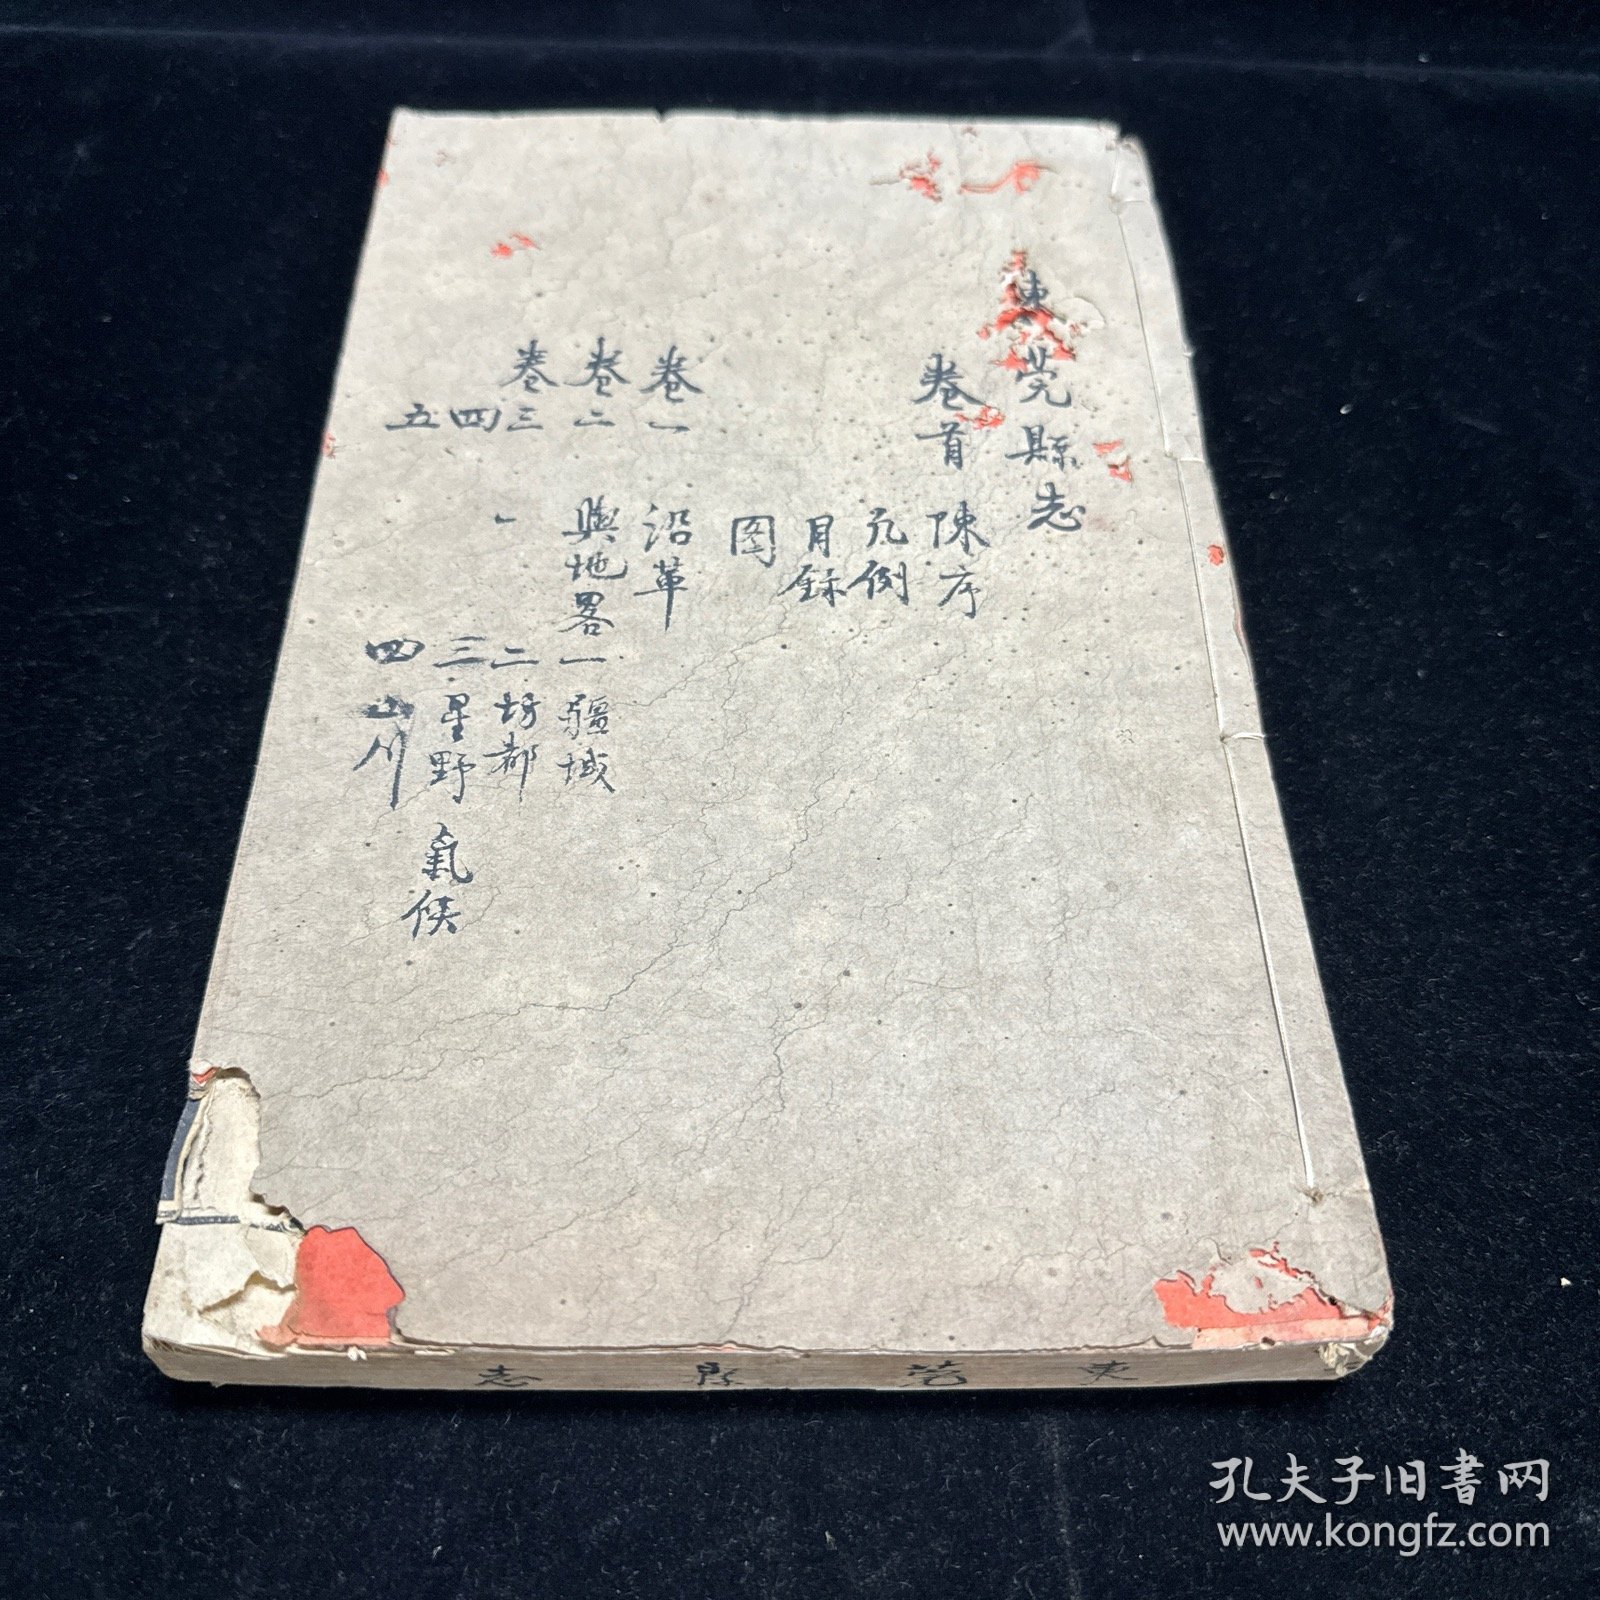 東莞縣志
卷首 陳序
凡例
目錄
图
卷一 沿革
卷二 輿地畧一 疆域
卷三 、 二 坊都
四 三 星野 氣候
五 四 山川
東莞縣志
孔夫子旧書网
www.kongfz.com